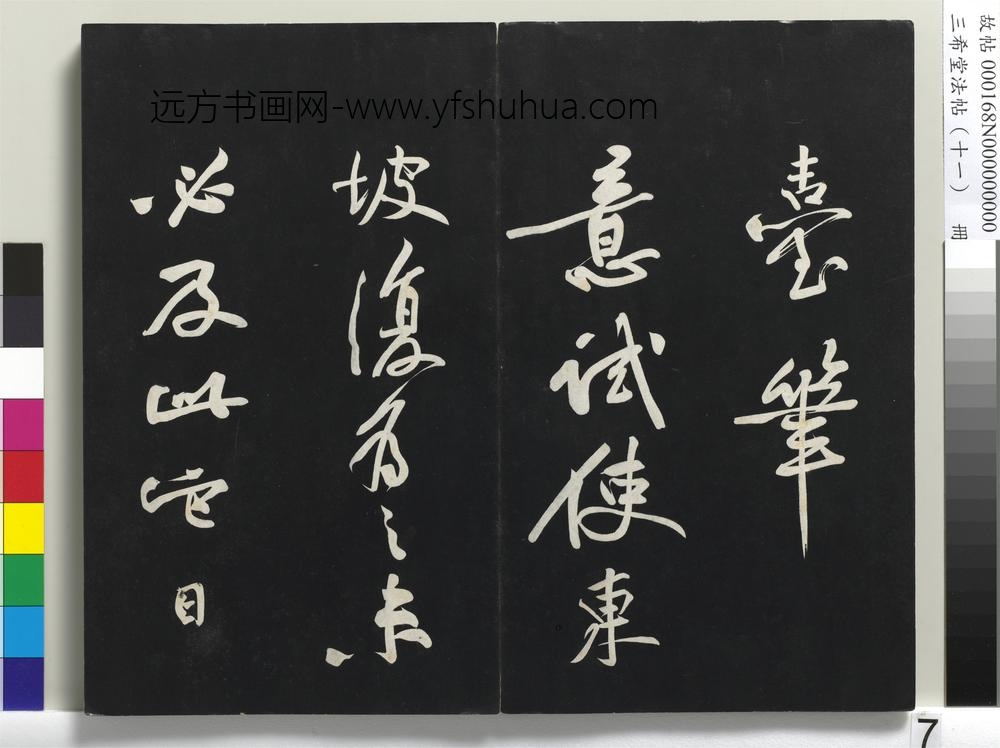 臺筆
意試使東
坡復為之未
必及此它日
远方书画网-www.yfshuhua.com
故帖 000168N000000000
三希堂法帖（十一） 冊
7